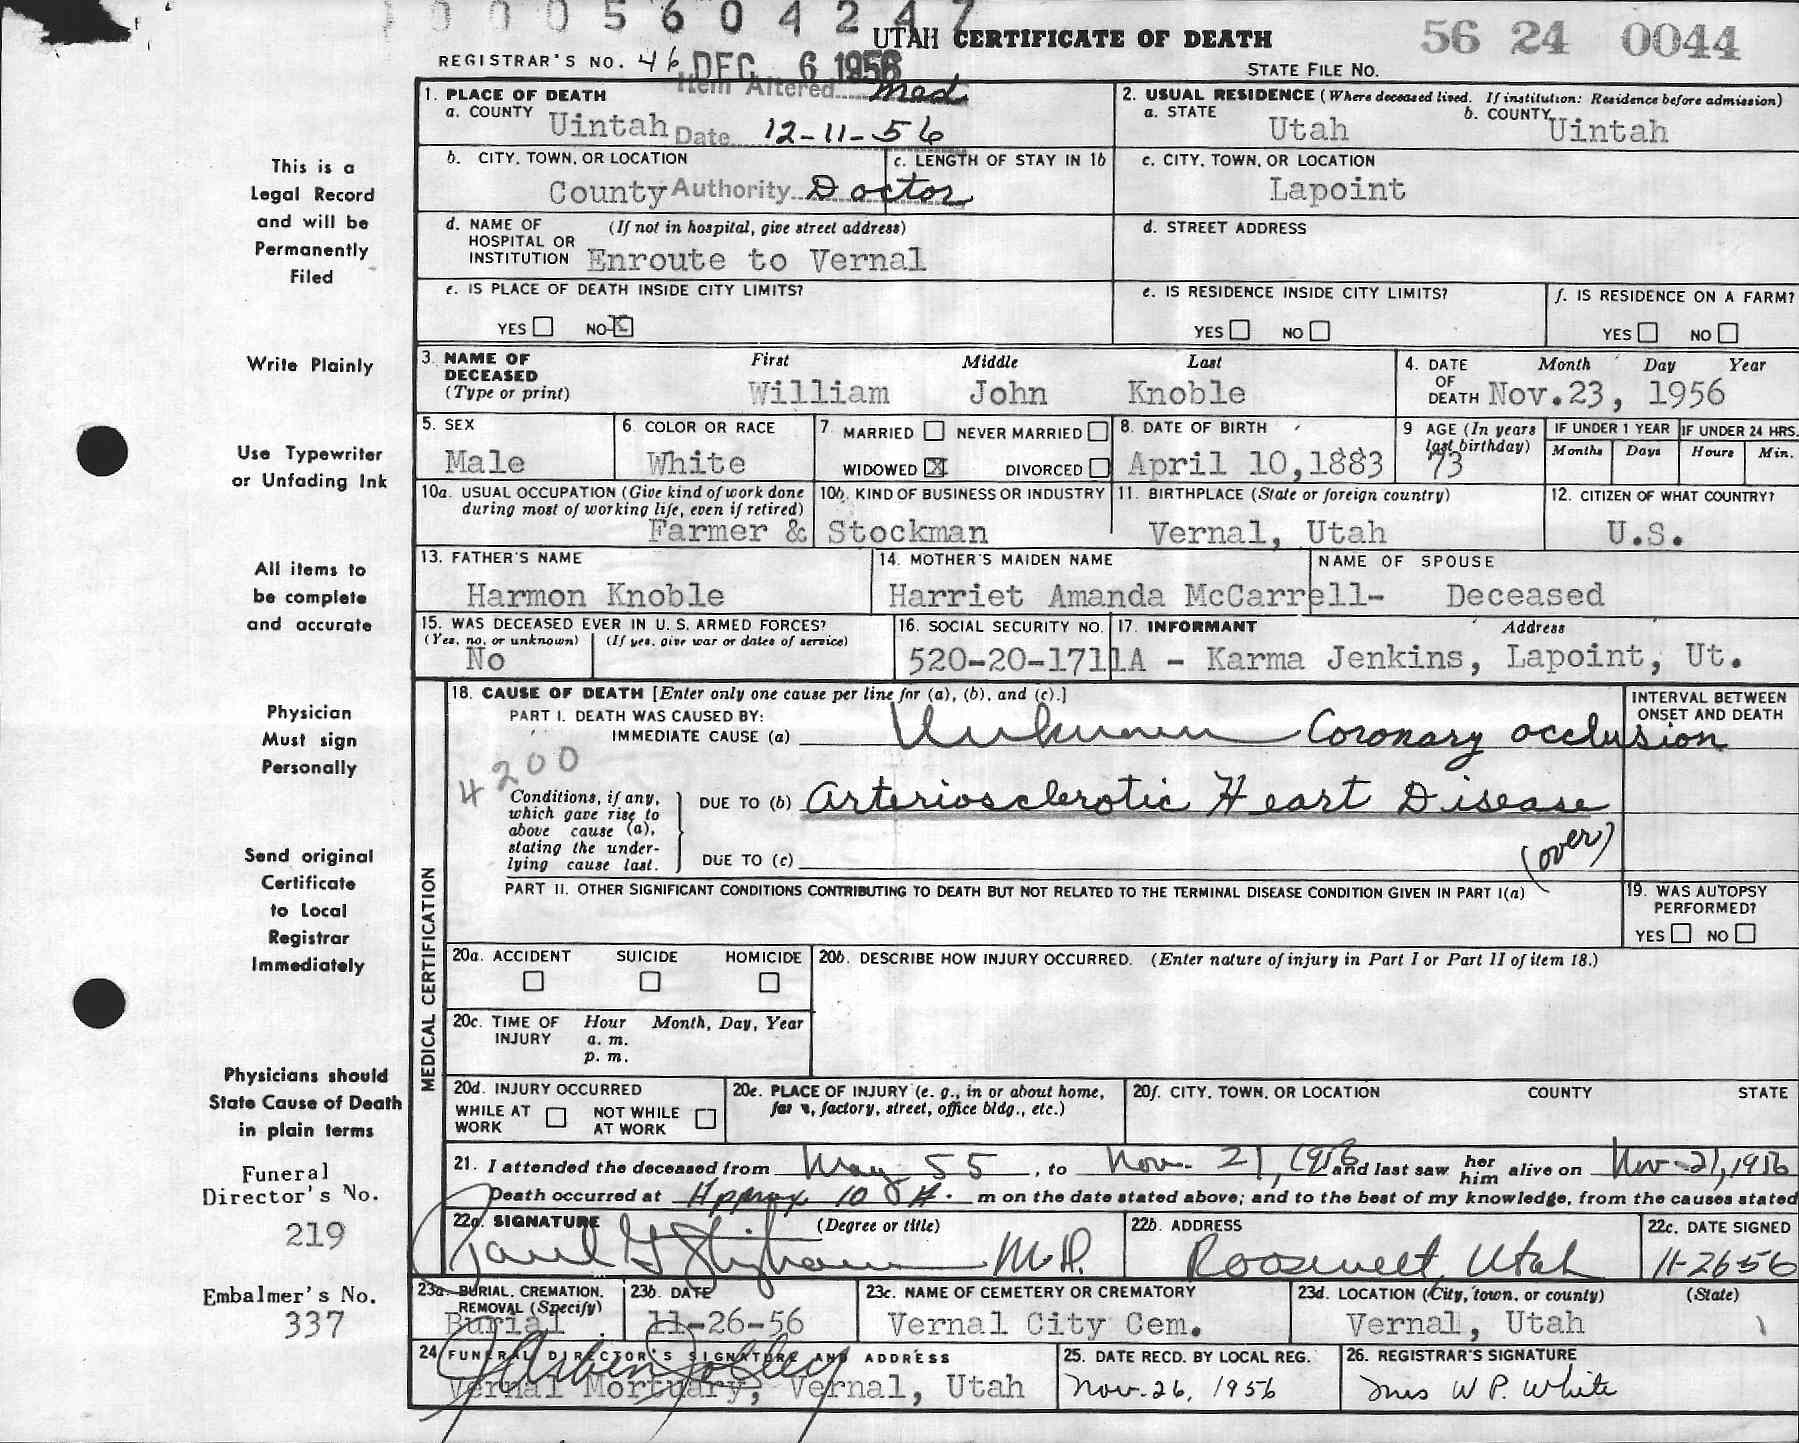 0005604247
UTAH CERTIFICATE OF DEATH
56 24 0044
REGISTRAR'S NO. 46 DEC 6 1956
STATE FILE NO.
Item Altered Med
1. PLACE OF DEATH
a. COUNTY Uintah Date 12-11-56
2. USUAL RESIDENCE (Where deceased lived. If institution: Residence before admission)
a. STATE Utah b. COUNTY Uintah
b. CITY, TOWN, OR LOCATION County Authority Doctor
c. LENGTH OF STAY IN 1b
c. CITY, TOWN, OR LOCATION
Lapoint
d. NAME OF HOSPITAL OR INSTITUTION (If not in hospital, give street address)
Enroute to Vernal
d. STREET ADDRESS
e. IS PLACE OF DEATH INSIDE CITY LIMITS?
YES NO X
e. IS RESIDENCE INSIDE CITY LIMITS?
YES NO
f. IS RESIDENCE ON A FARM?
YES NO
3. NAME OF DECEASED (Type or print)
First Middle Last
William John Knoble
4. DATE OF DEATH Month Day Year
Nov. 23, 1956
5. SEX
Male
6. COLOR OR RACE
White
7. MARRIED NEVER MARRIED
WIDOWED X DIVORCED
8. DATE OF BIRTH
April 10, 1883
9 AGE (In years last birthday)
73
IF UNDER 1 YEAR
Months Days
IF UNDER 24 HRS.
Hours Min.
10a. USUAL OCCUPATION (Give kind of work done during most of working life, even if retired)
10b. KIND OF BUSINESS OR INDUSTRY
Farmer & Stockman
11. BIRTHPLACE (State or foreign country)
Vernal, Utah
12. CITIZEN OF WHAT COUNTRY?
U.S.
13. FATHER'S NAME
Harmon Knoble
14. MOTHER'S MAIDEN NAME
Harriet Amanda McCarrell-
NAME OF SPOUSE
Deceased
15. WAS DECEASED EVER IN U. S. ARMED FORCES?
(Yes, no, or unknown) (If yes, give war or dates of service)
No
16. SOCIAL SECURITY NO.
17. INFORMANT Address
520-20-1711A - Karma Jenkins, Lapoint, Ut.
MEDICAL CERTIFICATION
18. CAUSE OF DEATH [Enter only one cause per line for (a), (b), and (c).]
INTERVAL BETWEEN ONSET AND DEATH
PART I. DEATH WAS CAUSED BY:
IMMEDIATE CAUSE (a) Unknown Coronary occlusion
4200
Conditions, if any, which gave rise to above cause (a), stating the underlying cause last.
DUE TO (b) Arteriosclerotic Heart Disease
DUE TO (c)
(over)
PART II. OTHER SIGNIFICANT CONDITIONS CONTRIBUTING TO DEATH BUT NOT RELATED TO THE TERMINAL DISEASE CONDITION GIVEN IN PART I(a)
19. WAS AUTOPSY PERFORMED?
YES NO
20a. ACCIDENT SUICIDE HOMICIDE
20b. DESCRIBE HOW INJURY OCCURRED. (Enter nature of injury in Part I or Part II of item 18.)
20c. TIME OF INJURY Hour Month, Day, Year
a. m.
p. m.
20d. INJURY OCCURRED
WHILE AT WORK NOT WHILE AT WORK
20e. PLACE OF INJURY (e. g., in or about home, farm, factory, street, office bldg., etc.)
20f. CITY, TOWN, OR LOCATION COUNTY STATE
21. I attended the deceased from May 55, to Nov. 21, 1956 and last saw her him alive on Nov-21, 1956
Death occurred at Approx 10 m on the date stated above; and to the best of my knowledge, from the causes stated
22a. SIGNATURE (Degree or title)
Paul G M.D.
22b. ADDRESS
Roosevelt, Utah
22c. DATE SIGNED
11-26-56
23a. BURIAL, CREMATION, REMOVAL (Specify)
Burial
23b. DATE
11-26-56
23c. NAME OF CEMETERY OR CREMATORY
Vernal City Cem.
23d. LOCATION (City, town, or county) (State)
Vernal, Utah
24 FUNERAL DIRECTOR'S SIGNATURE AND ADDRESS
Vernal Mortuary, Vernal, Utah
25. DATE RECD. BY LOCAL REG.
Nov. 26, 1956
26. REGISTRAR'S SIGNATURE
Mrs W P. White
This is a
Legal Record
and will be
Permanently
Filed
Write Plainly
Use Typewriter
or Unfading Ink
All items to
be complete
and accurate
Physician
Must sign
Personally
Send original
Certificate
to Local
Registrar
Immediately
Physicians should
State Cause of Death
in plain terms
Funeral
Director's No.
219
Embalmer's No.
337